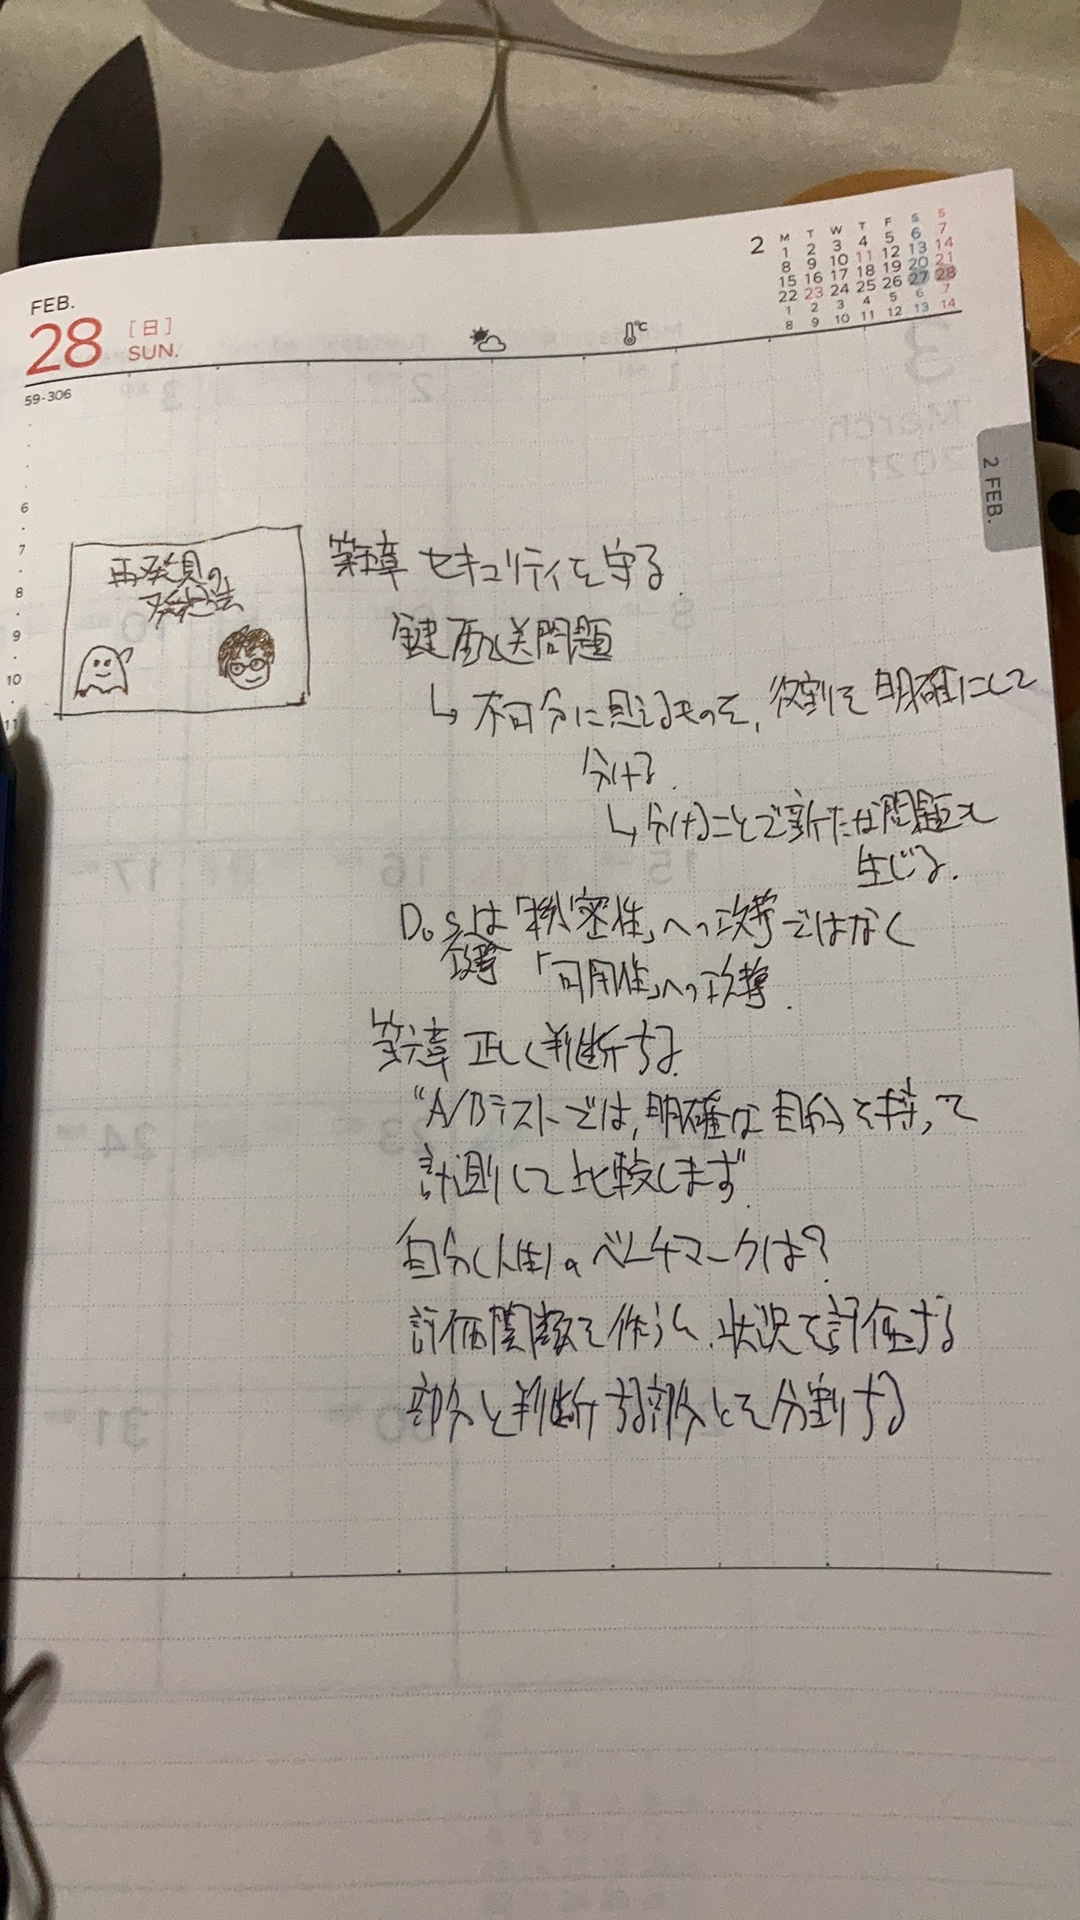 FEB.
28 [日] SUN.
59-306
2 M T W T F S S
1 2 3 4 5 6 7
8 9 10 11 12 13 14
15 16 17 18 19 20 21
22 23 24 25 26 27 28
1 2 3 4 5 6 7
8 9 10 11 12 13 14
℃
2 FEB.
6
7
8
9
10
11
再発見の
発想法
第五章 セキュリティを守る
鍵配送問題
↳ 不可分に見えるものを、役割を明確にして
分ける.
↳ 分けることで新たな問題も
生じる.
DoSは「機密性」への攻撃ではなく
攻撃 「可用性」への攻撃.
第六章 正しく判断する
"A/Bテストでは,明確な目的を持って
計測して比較します"
自分(人生)のベンチマークは?
評価関数を作るし、状況を評価する
部分と判断する部分とを分割する